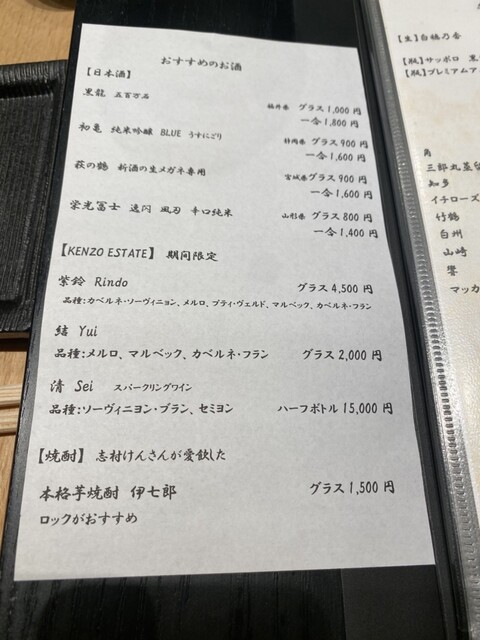 おすすめのお酒
【日本酒】
黒龍 五百万石
福井県 グラス 1,000 円
一合 1,800 円
初亀 純米吟醸 BLUE うすにごり
静岡県 グラス 900 円
一合 1,600 円
萩の鶴 新酒の生メガネ専用
宮城県 グラス 900 円
一合 1,600 円
栄光冨士 逸閃 風刃 辛口純米
山形県 グラス 800 円
一合 1,400 円
【KENZO ESTATE】 期間限定
紫鈴 Rindo
グラス 4,500 円
品種:カベルネ・ソーヴィニョン、メルロ、プティ・ヴェルド、マルベック、カベルネ・フラン
結 Yui
品種:メルロ、マルベック、カベルネ・フラン グラス 2,000 円
清 Sei スパークリングワイン
品種:ソーヴィニヨン・ブラン、セミヨン ハーフボトル 15,000 円
【焼酎】 志村けんさんが愛飲した
本格芋焼酎 伊七郎 グラス 1,500 円
ロックがおすすめ
【生】白穂乃香
【瓶】サッポロ 黒
【瓶】プレミアムア
角
三郎丸蒸留
知多
イチローズ
竹鶴
白州
山崎
響
マッカ